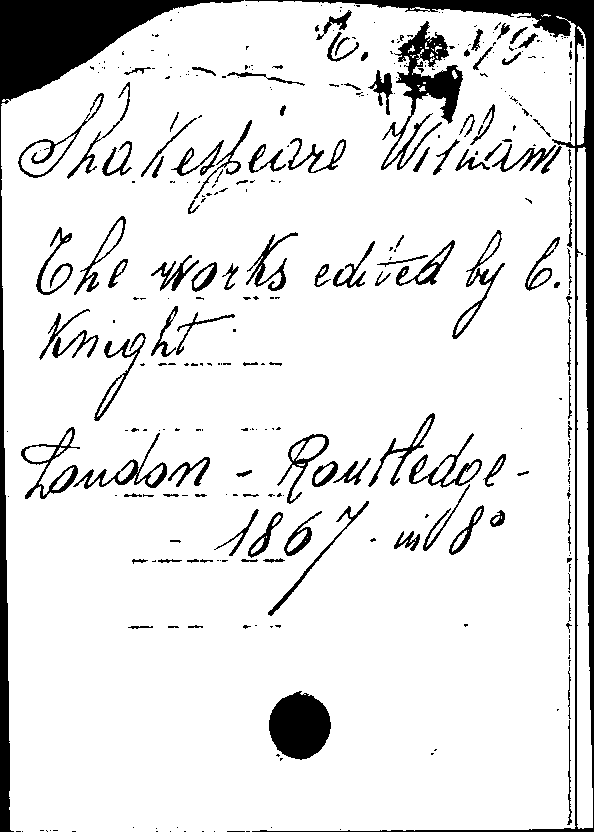 Shakespeare William
The works edited by C.
Knight
London - Routledge -
- 1867. in 8°